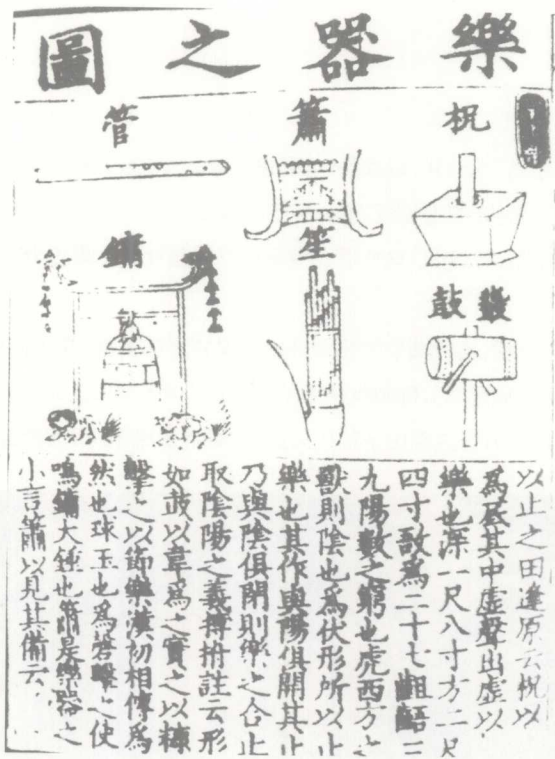 樂器之圖
柷
簫
管
鼗鼓
笙
鏞
以止之田逢原云柷以
為居其中虛聲出虛以
樂也深一尺八寸方二尺
四寸敔為二十七齟齬三
九陽數之窮也虎西方之
獸則陰也為伏形所以止
樂也其作與陽俱開其止
乃與陰俱閉則樂之合止
取陰陽之義搏拊註云形
如鼓以韋為之實之以糠
擊之以節樂漢初相傳為
然也球玉也為磬擊之使
鳴鏞大鍾也簫是樂器之
小言簫以見其備云